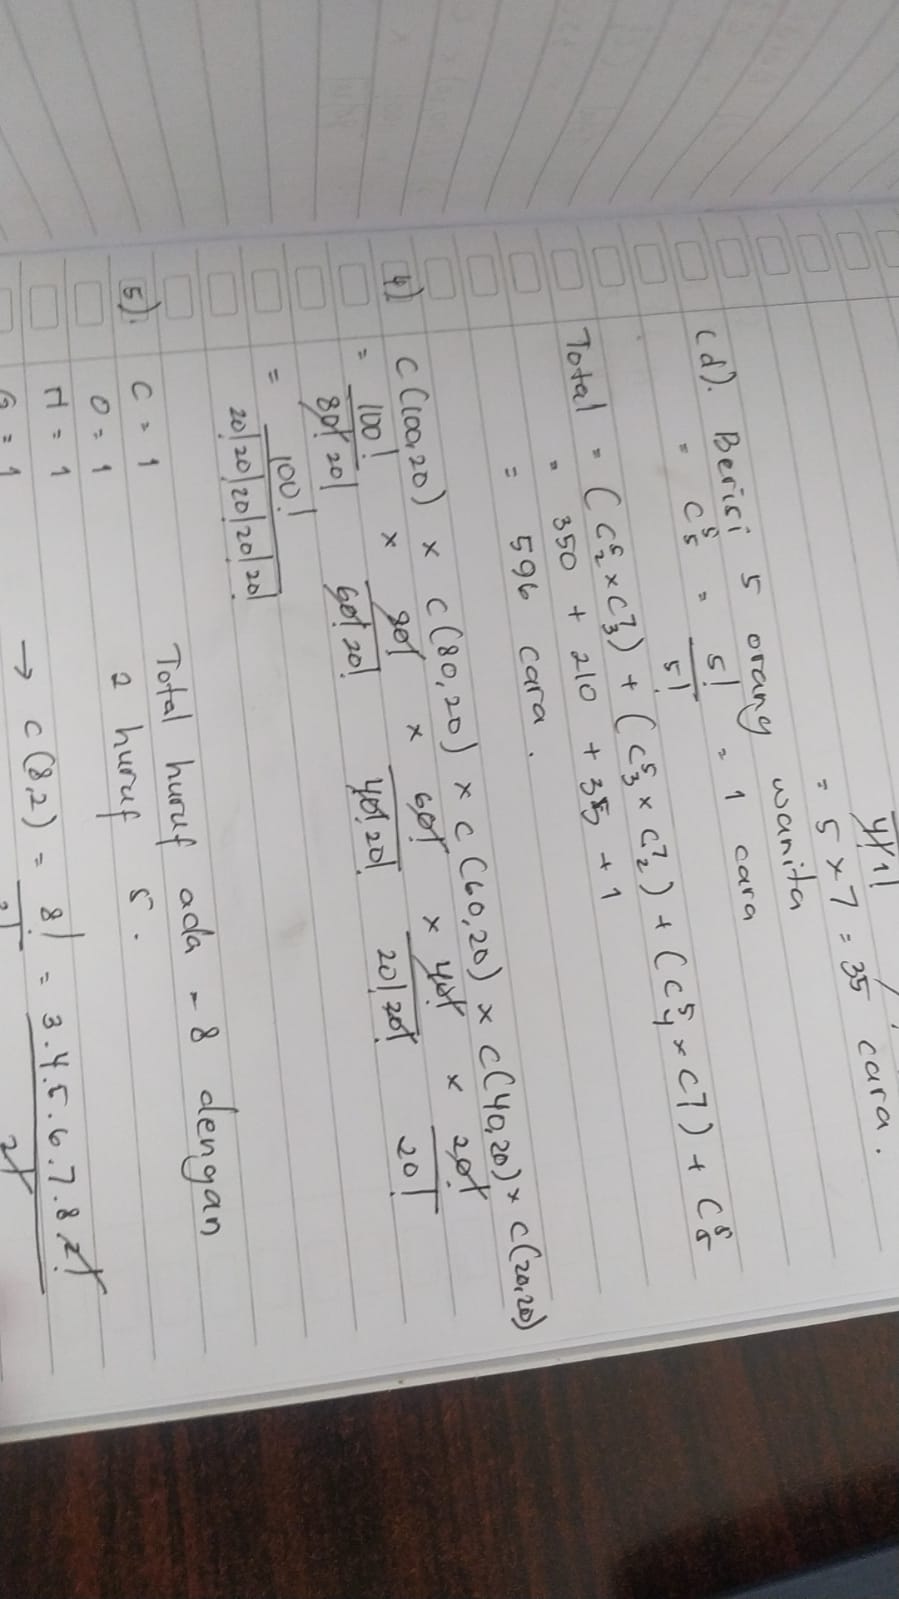 4! 1!
= 5 × 7 = 35 cara.
(d). Berisi 5 orang wanita
= C⁵₅ = 5!/5! = 1 cara
Total = (C⁵₂ × C⁷₃) + (C⁵₃ × C⁷₂) + (C⁵₄ × C7) + C⁵₅
= 350 + 210 + 35 + 1
= 596 cara.
4) C(100,20) × C(80,20) × C(60,20) × C(40,20) × C(20,20)
= 100!/80! 20! × 80!/60! 20! × 60!/40! 20! × 40!/20! 20! × 20!/20!
= 100!/20! 20! 20! 20! 20!
5). C = 1 Total huruf ada = 8 dengan
O = 1 2 huruf S.
H = 1
G = 1 → C(8,2) = 8!/2! = 3.4.5.6.7.8.2!/2!